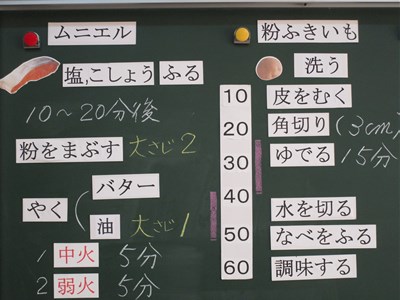 ムニエル
塩,こしょう ふる
10~20分後
粉をまぶす 大さじ2
やく
バター
油 大さじ1
1 中火 5分
2 弱火 5分
10
20
30
40
50
60
粉ふきいも
洗う
皮をむく
角切り (3cm)
ゆでる 15分
水を切る
なべをふる
調味する